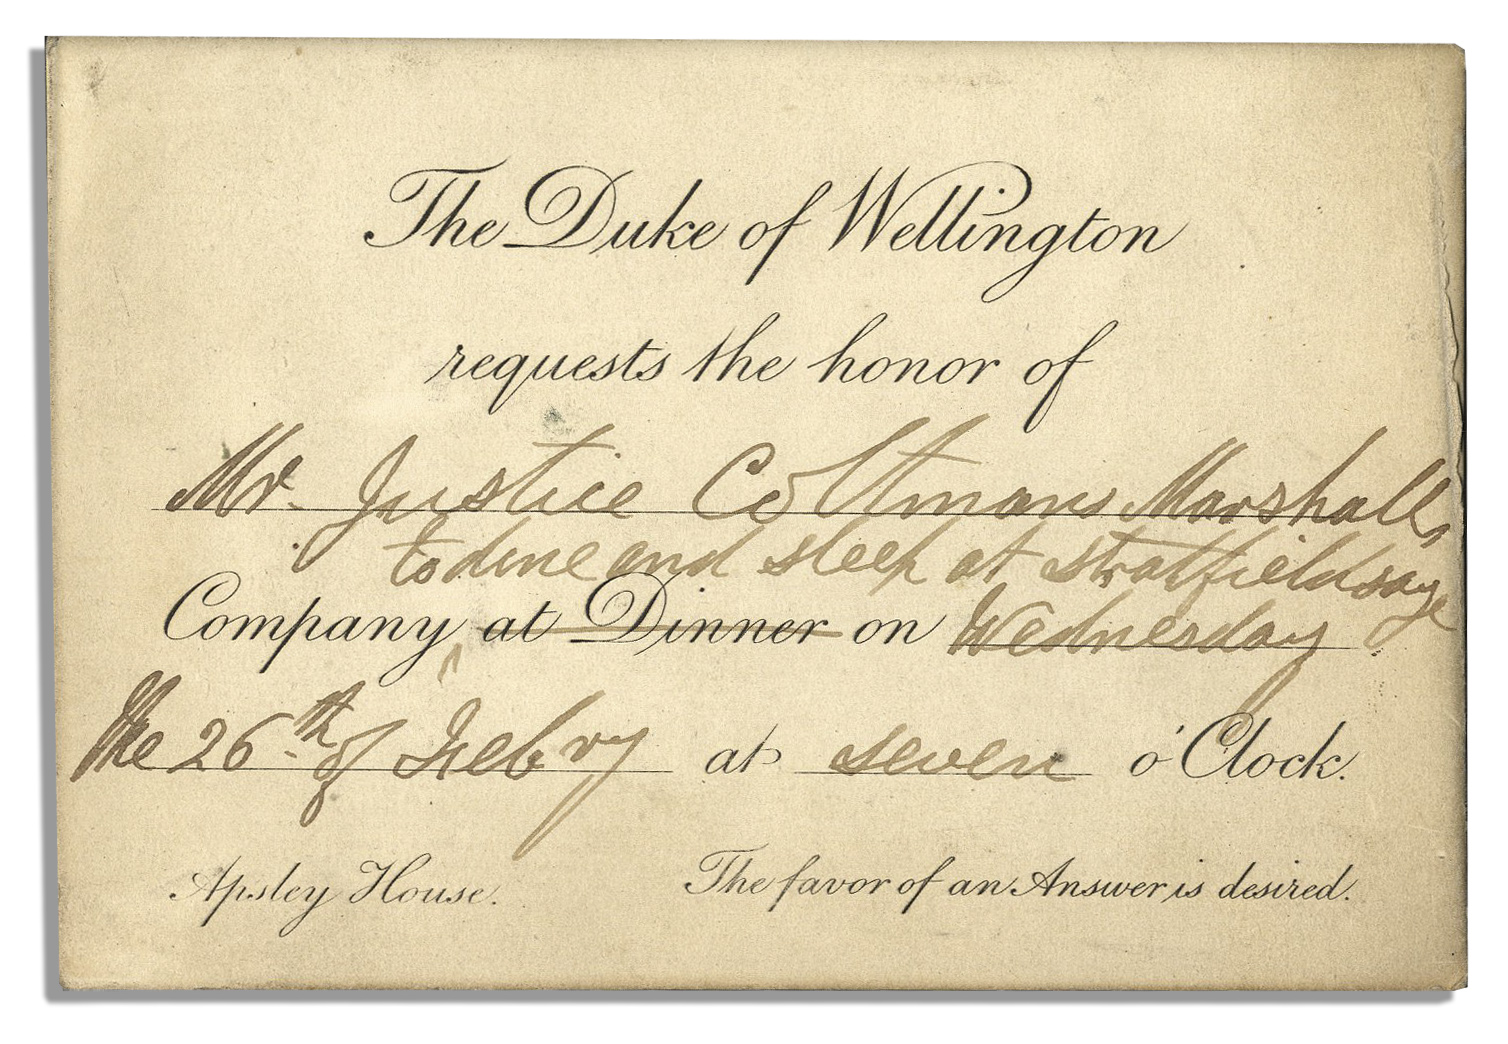 The Duke of Wellington
requests the honor of
Mr. Justice Coltmans Marshall,
to dine and sleep at Stratfieldsaye
Company at Dinner on Wednesday
the 26th of Febry at seven o'Clock.
Apsley House. The favor of an Answer is desired.